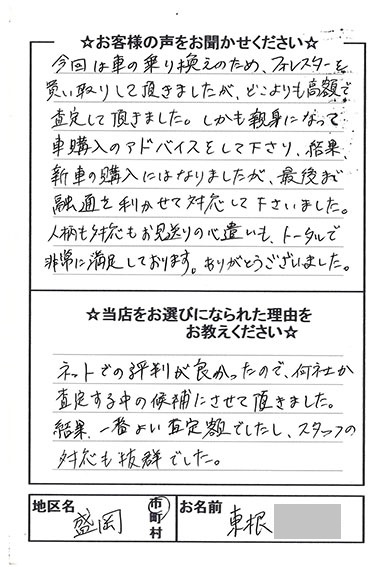 ☆お客様の声をお聞かせください☆
今回は車の乗り換えのため、フォレスターを
買い取りして頂きましたが、どこよりも高額で
査定して頂きました。しかも親身になって
車購入のアドバイスをして下さり、結果、
新車の購入にはなりましたが、最後まで
融通を利かせて対応して下さいました。
人柄も対応もお見送りの心遣いも、トータルで
非常に満足しております。ありがとうございました。
☆当店をお選びになられた理由を
お教えください☆
ネットでの評判が良かったので、何社か
査定する中の候補にさせて頂きました。
結果、一番よい査定額でしたし、スタッフの
対応も抜群でした。
地区名 盛岡 市町村 お名前 東根